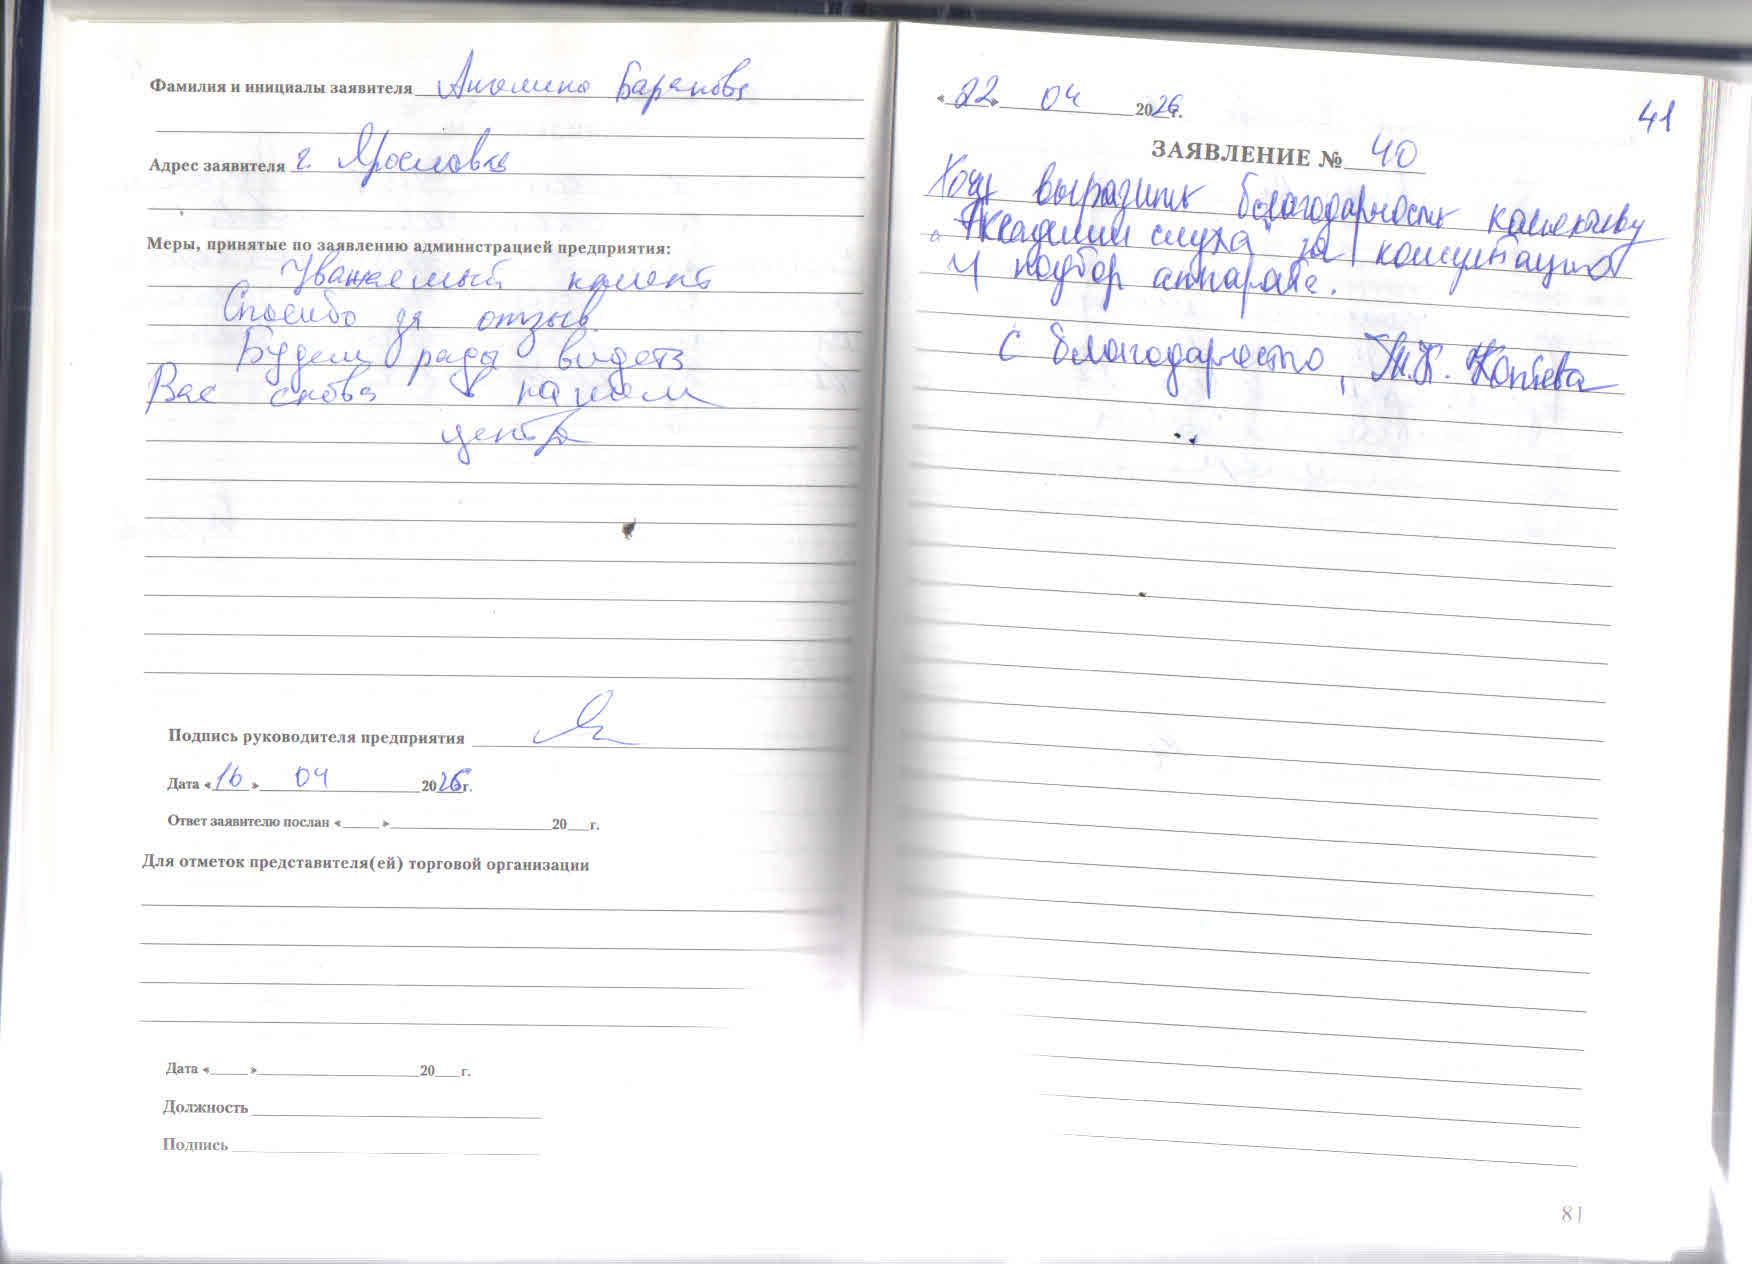 Фамилия и инициалы заявителя Ангелина Баранова
Адрес заявителя г. Ярославль
Меры, принятые по заявлению администрацией предприятия:
Уважаемый клиент
Спасибо за отзыв.
Будем рады видеть
Вас снова в нашем
центре
Подпись руководителя предприятия
Дата «16» 04 2026г.
Ответ заявителю послан « » 20 г.
Для отметок представителя(ей) торговой организации
Дата « » 20 г.
Должность
Подпись
«22» 04 2026г.
41
ЗАЯВЛЕНИЕ № 40
Хочу выразить благодарность коллективу
"Академии слуха" за консультацию
и подбор аппарата.
С благодарностью,
81